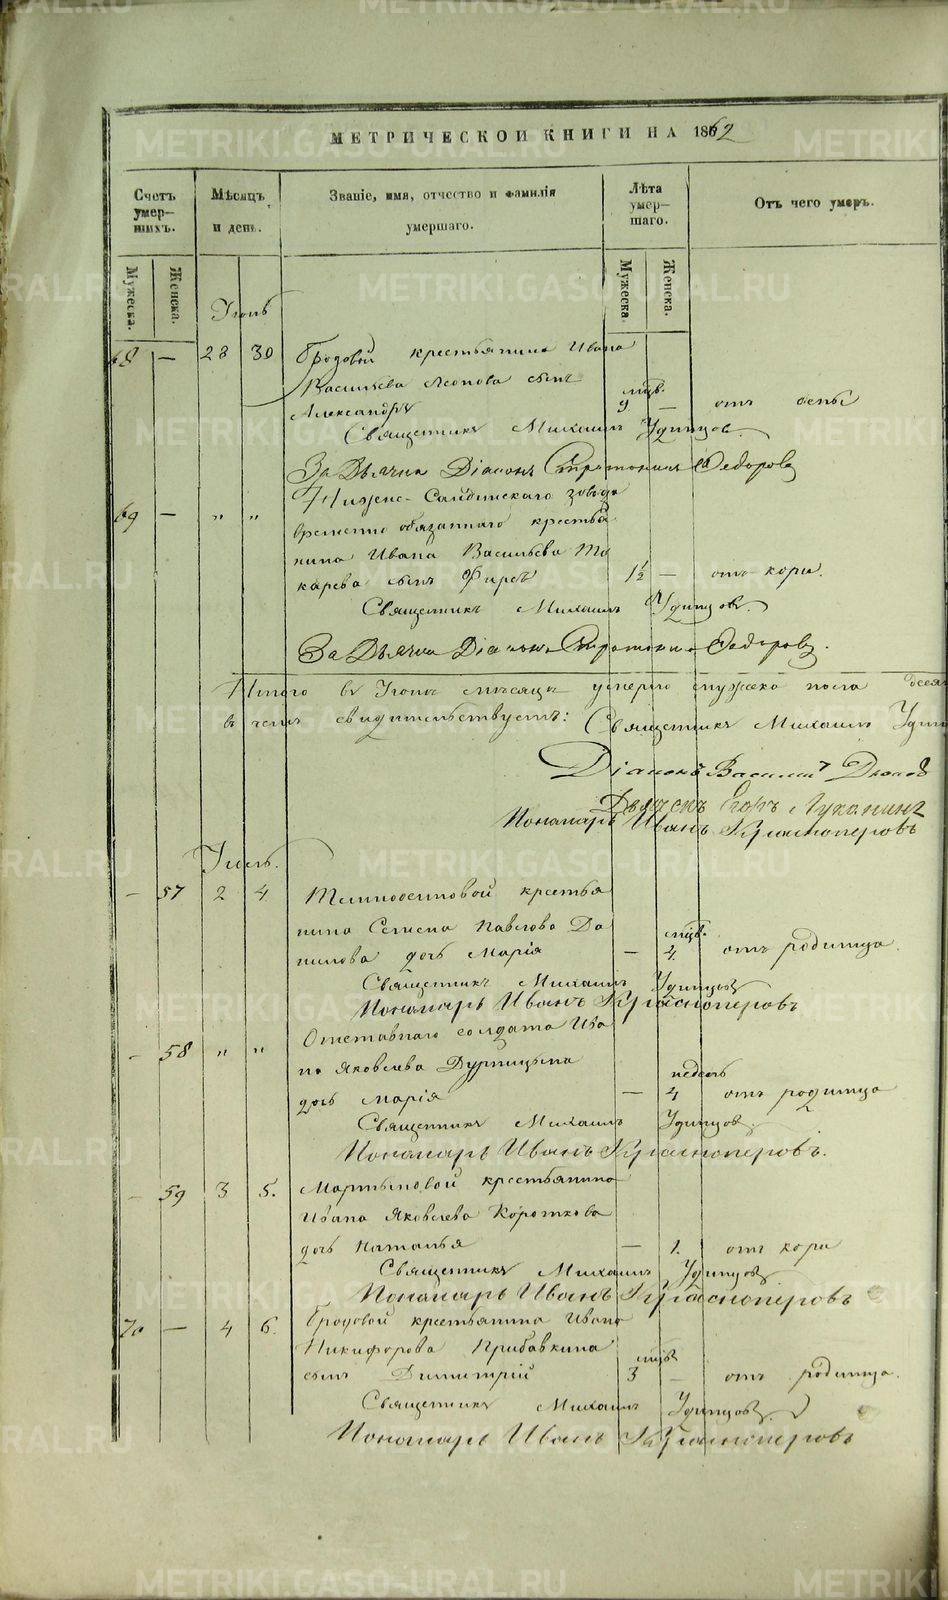 МЕТРИЧЕСКОЙ КНИГИ НА 1862
Счетъ умер-шихъ.
Мѣсяцъ и день.
Званіе, имя, отчество и фамилія умершаго.
Лѣта умер-шаго.
Отъ чего умеръ.
Мужеска. Женска.
Мужеска. Женска.
Іюнь
68 — 28 30 Бродовой крестьянина Ивана
Васильева Леонова сынъ
Александръ 9 мцв. — отъ оспы
Священникъ Михаилъ Удинцов.
За Дьячка Діаконъ Федоровъ
69 — „ „ Нижне-Салдинскаго завода
временно обязаннаго крестья
нина Ивана Васильева То
карева сынъ Фирсъ 1½ — отъ кори.
Священникъ Михаилъ Удинцовъ.
За Дьячка Діаконъ Федоровъ.
Итого въ Іюнѣ мѣсяцѣ умерло мужеска пола
въ чемъ свидѣтельствуемъ: Священникъ Михаилъ
Діаконъ Василій
Дьячекъ Егоръ Луканинъ
Пономарь Иванъ Красноперовъ
Іюль.
— 57 2 4 крестья
нина Семена Павлова Да
нилова дочь Марія — 4 мцв. отъ родимца.
Священникъ Михаилъ Удинцовъ
Пономарь Иванъ Красноперовъ
— 58 „ „ Отставнаго солдата Ива
на Яковлева Дурницына
дочь Марія — 4 недель отъ родимца
Священникъ Михаилъ Удинцовъ.
Пономарь Иванъ Красноперовъ.
— 59 3 5. Мартыновой крестьянина
Ивана Яковлева Короткова
дочь Наталья — 1. отъ кори
Священникъ Михаилъ Удинцовъ
Пономарь Иванъ Красноперовъ
70 — 4 6. Бродовой крестьянина Ивана
Никифорова Прибавкина
сынъ Димитрій 3 мцв — отъ родимца.
Священникъ Михаилъ Удинцовъ.
Пономарь Иванъ Красноперовъ
METRIKI.GASO-URAL.RU